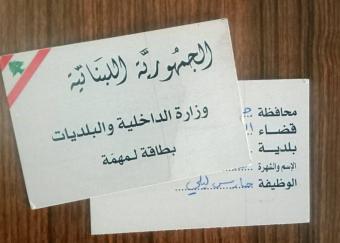 الجمهوريّة اللبنانيّة
وزارة الداخلية والبلديات
بطاقة لمهمّة
محافظة
قضاء
بلدية
الإسم والشهرة
الوظيفة حارس ليلي